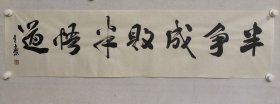 半争成败半悟道